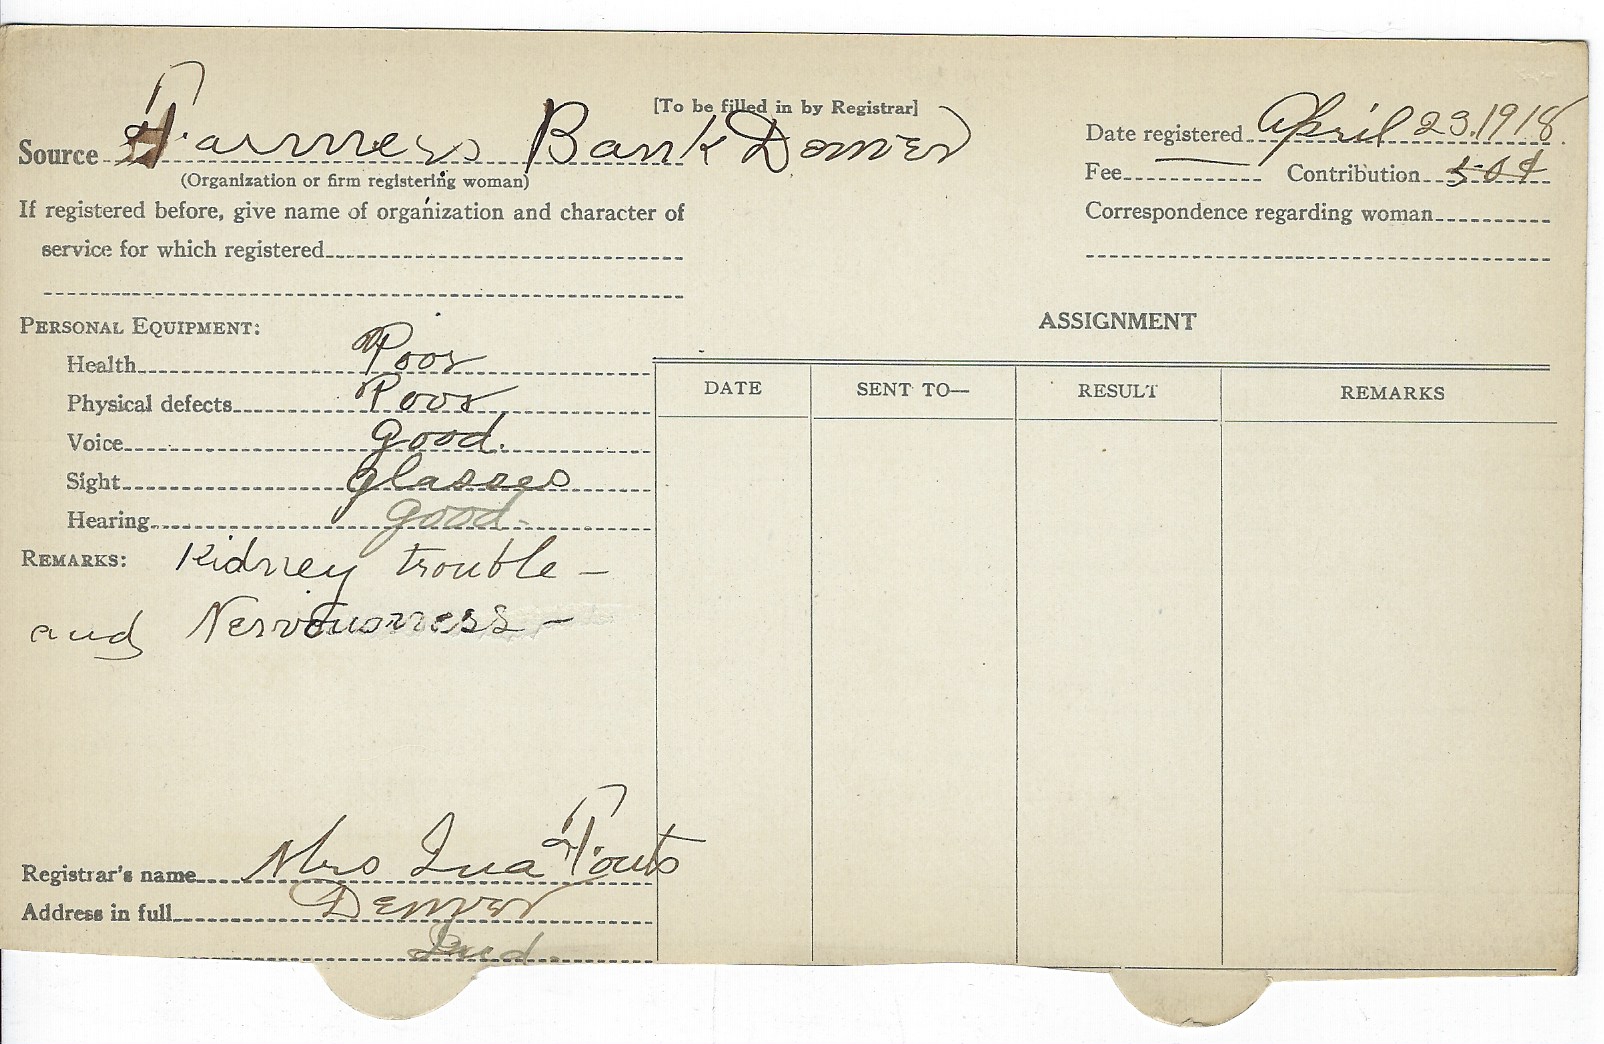 [To be filled in by Registrar]
Source Farmers Bank Denver
(Organization or firm registering woman)
Date registered April 23. 1918
Fee — Contribution 50¢
If registered before, give name of organization and character of
service for which registered
Correspondence regarding woman
PERSONAL EQUIPMENT:
Health Poor
Physical defects Poor
Voice Good.
Sight Glasses
Hearing Good.
REMARKS: Kidney trouble —
and Nervousness —
Registrar's name Mrs Ina Fouts
Address in full Denver
Ind.
ASSIGNMENT
DATE SENT TO— RESULT REMARKS